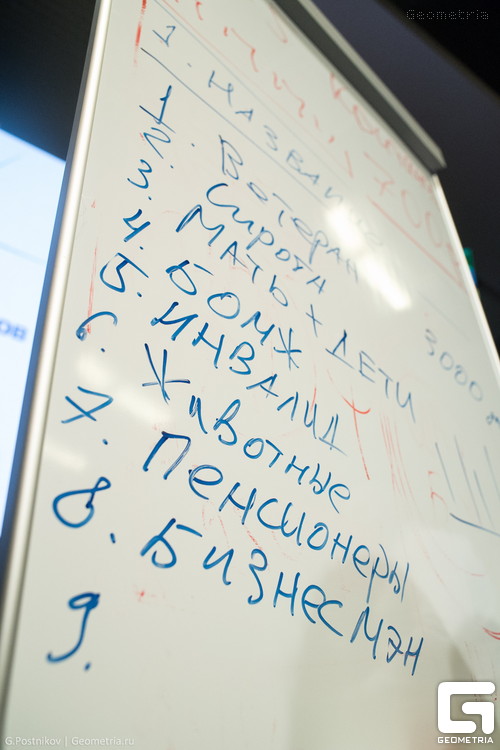 Geometria
1. НАЗВАНИЕ
1. Ветеран
2. Сирота
3. МАТЬ + ДЕТИ 3000
4. БОМЖ
5. ИНВАЛИД
6. Животные
7. Пенсионеры
8. БИЗНЕСМЭН
9.
ов
G.Postnikov | Geometria.ru
GEOMETRIA